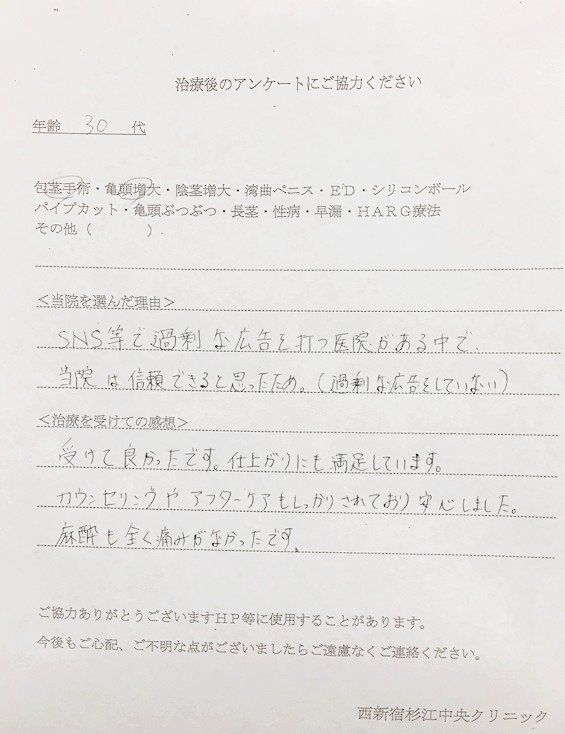 治療後のアンケートにご協力ください
年齢 30 代
包茎手術・亀頭増大・陰茎増大・湾曲ペニス・ED・シリコンボール
パイプカット・亀頭ぶつぶつ・長茎・性病・早漏・HARG療法
その他（　　　　）
＜当院を選んだ理由＞
SNS等で過剰な広告を打つ医院がある中で、
当院は信頼できると思ったため。（過剰な広告をしていない）
＜治療を受けての感想＞
受けて良かったです。仕上がりにも満足しています。
カウンセリングやアフターケアもしっかりされており安心しました。
麻酔も全く痛みがなかったです。
ご協力ありがとうございますHP等に使用することがあります。
今後もご心配、ご不明な点がございましたらご遠慮なくご連絡ください。
西新宿杉江中央クリニック